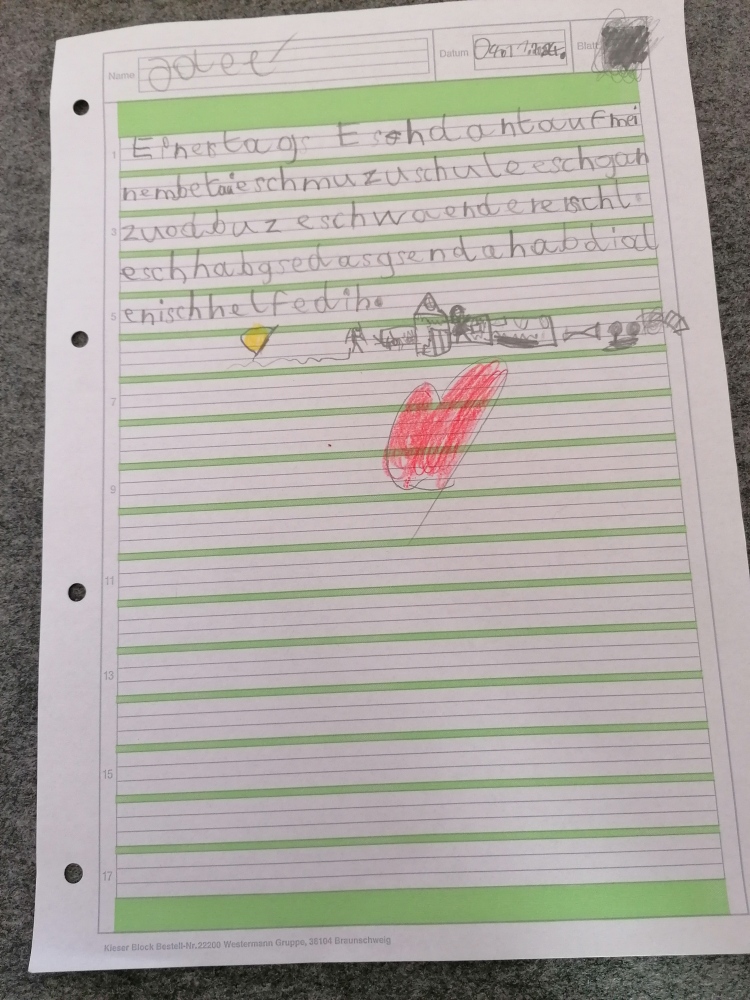 Name Datum Blatt
1 Einertags Eschdantaufmei
nembetaieschmuzuschuleeschgah
3 zuodbuz eschwaendereischl.
eschhabgsedasgsendahabdiad
5 enischhelfedih.
7
9
11
13
15
17
Kieser Block Bestell-Nr.22200 Westermann Gruppe, 38104 Braunschweig